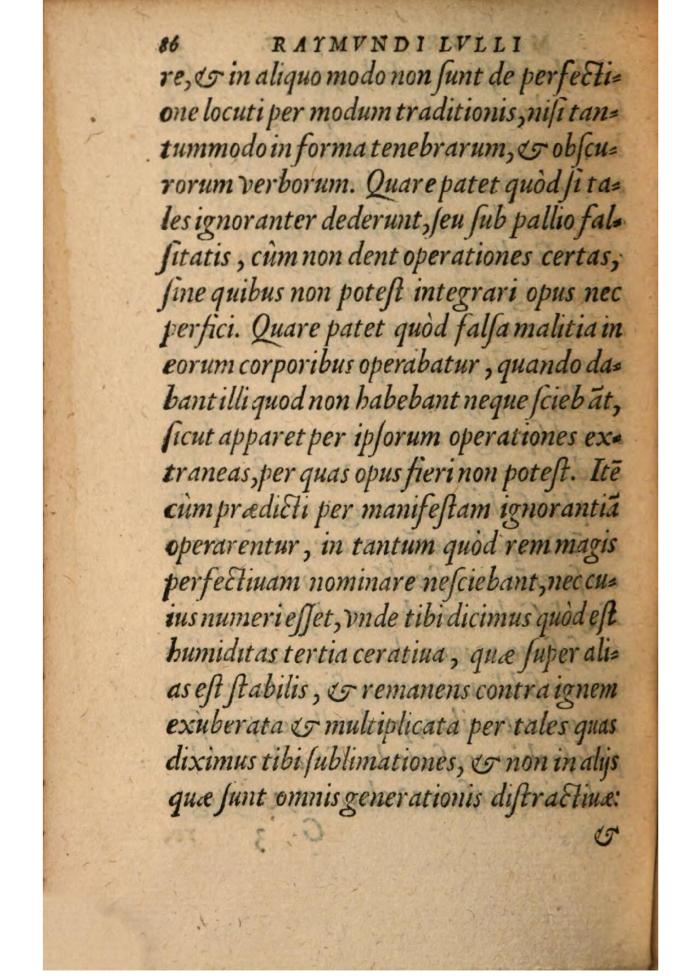 86 RAYMVNDI LVLLI
re, & in aliquo modo non ſunt de perfecti-
one locuti per modum traditionis, niſi tan-
tummodo in forma tenebrarum, & obſcu-
rorum verborum. Quare patet quòd ſi ta-
les ignoranter dederunt, ſeu ſub pallio fal-
ſitatis, cùm non dent operationes certas,
ſine quibus non poteſt integrari opus nec
perfici. Quare patet quòd falſa malitia in
eorum corporibus operabatur, quando da-
bant illi quod non habebant neque ſciebāt,
ſicut apparet per ipſorum operationes ex-
traneas, per quas opus fieri non poteſt. Itē
cùm prædicti per manifeſtam ignorantiā
operarentur, in tantum quòd rem magis
perfectiuam nominare neſciebant, nec cu-
ius numeri eſſet, vnde tibi dicimus quòd eſt
humiditas tertia ceratiua, quæ ſuper ali-
as eſt ſtabilis, & remanens contra ignem
exuberata & multiplicata per tales quas
diximus tibi ſublimationes, & non in alijs
quæ ſunt omnis generationis diſtractiuæ:
&